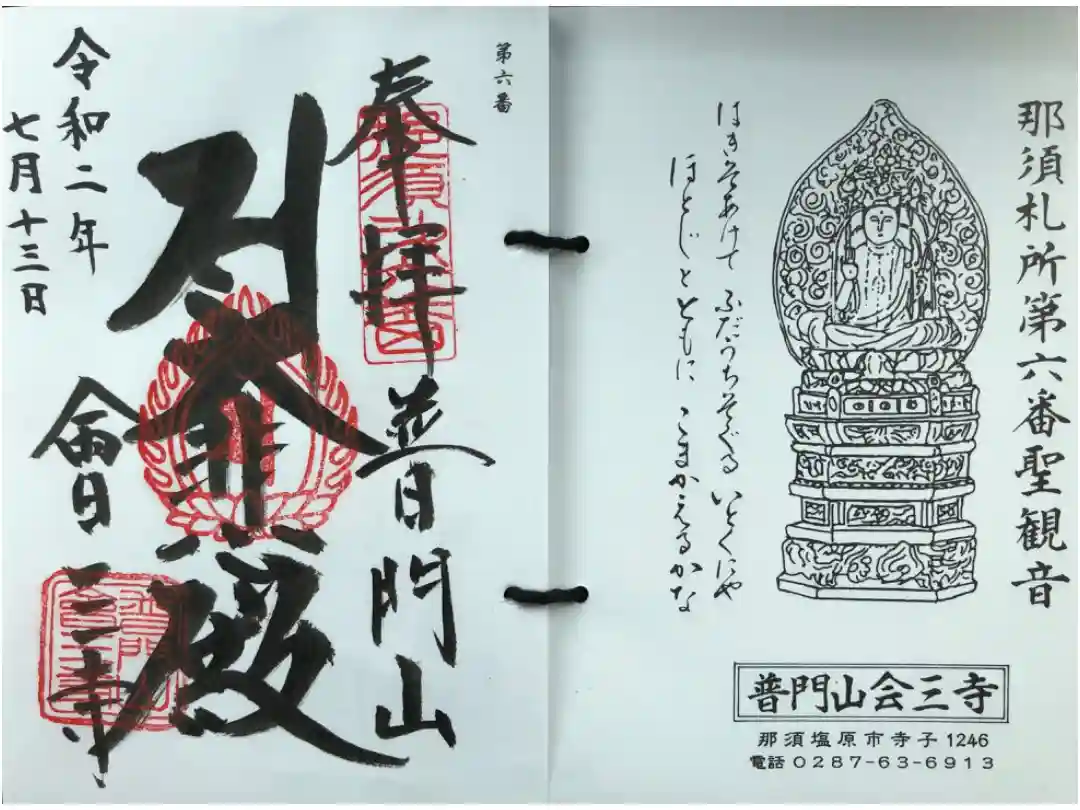 那須札所第六番聖観音
ふだうち
いとくにや
ともに こまかえるかな
普門山会三寺
那須塩原市寺子1246
電話0287-63-6913
第六番
奉拝
普門山
大悲殿
會三寺
令和二年
七月十三日